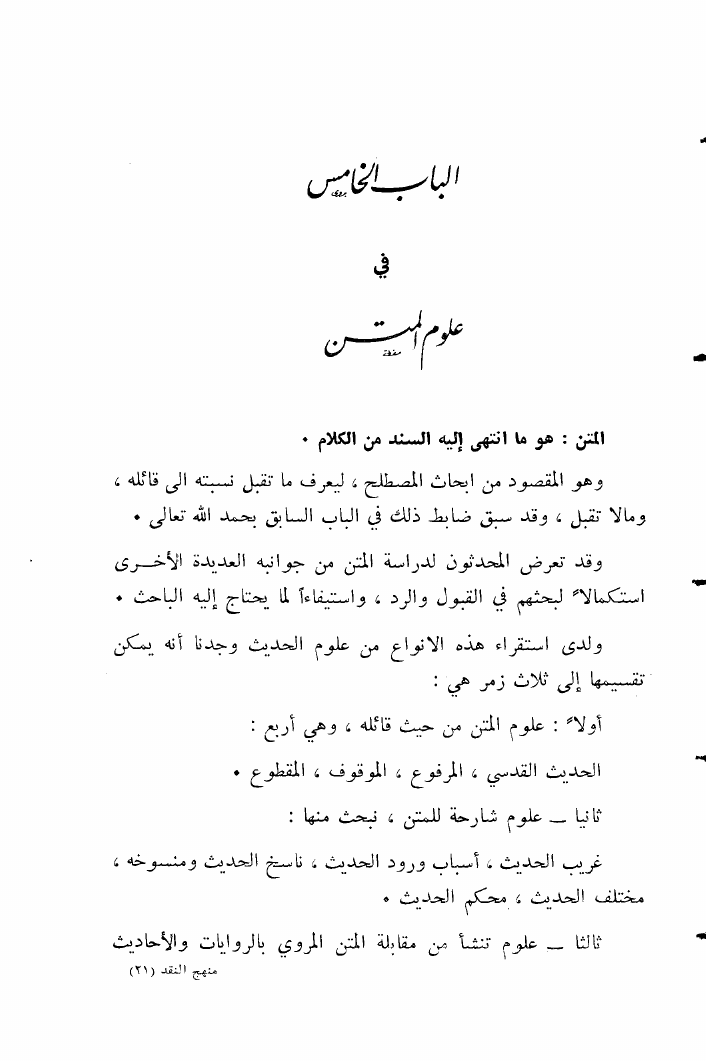 الباب الخامس
في
علوم المتن
المتن : هو ما انتهى إليه السند من الكلام •
وهو المقصود من ابحاث المصطلح ، ليعرف ما تقبل نسبته الى قائله ،
ومالا تقبل ، وقد سبق ضابط ذلك في الباب السابق بحمد الله تعالى •
وقد تعرض المحدثون لدراسة المتن من جوانبه العديدة الأخرى
استكمالاً لبحثهم في القبول والرد ، واستيفاءاً لما يحتاج إليه الباحث •
ولدى استقراء هذه الانواع من علوم الحديث وجدنا أنه يمكن
تقسيمها إلى ثلاث زمر هي :
أولاً : علوم المتن من حيث قائله ، وهي أربع :
الحديث القدسي ، المرفوع ، الموقوف ، المقطوع •
ثانيا – علوم شارحة للمتن ، نبحث منها :
غريب الحديث ، أسباب ورود الحديث ، ناسخ الحديث ومنسوخه ،
مختلف الحديث ، محكم الحديث •
ثالثا – علوم تنشأ من مقابلة المتن المروي بالروايات والأحاديث
منهج النقد (٢١)